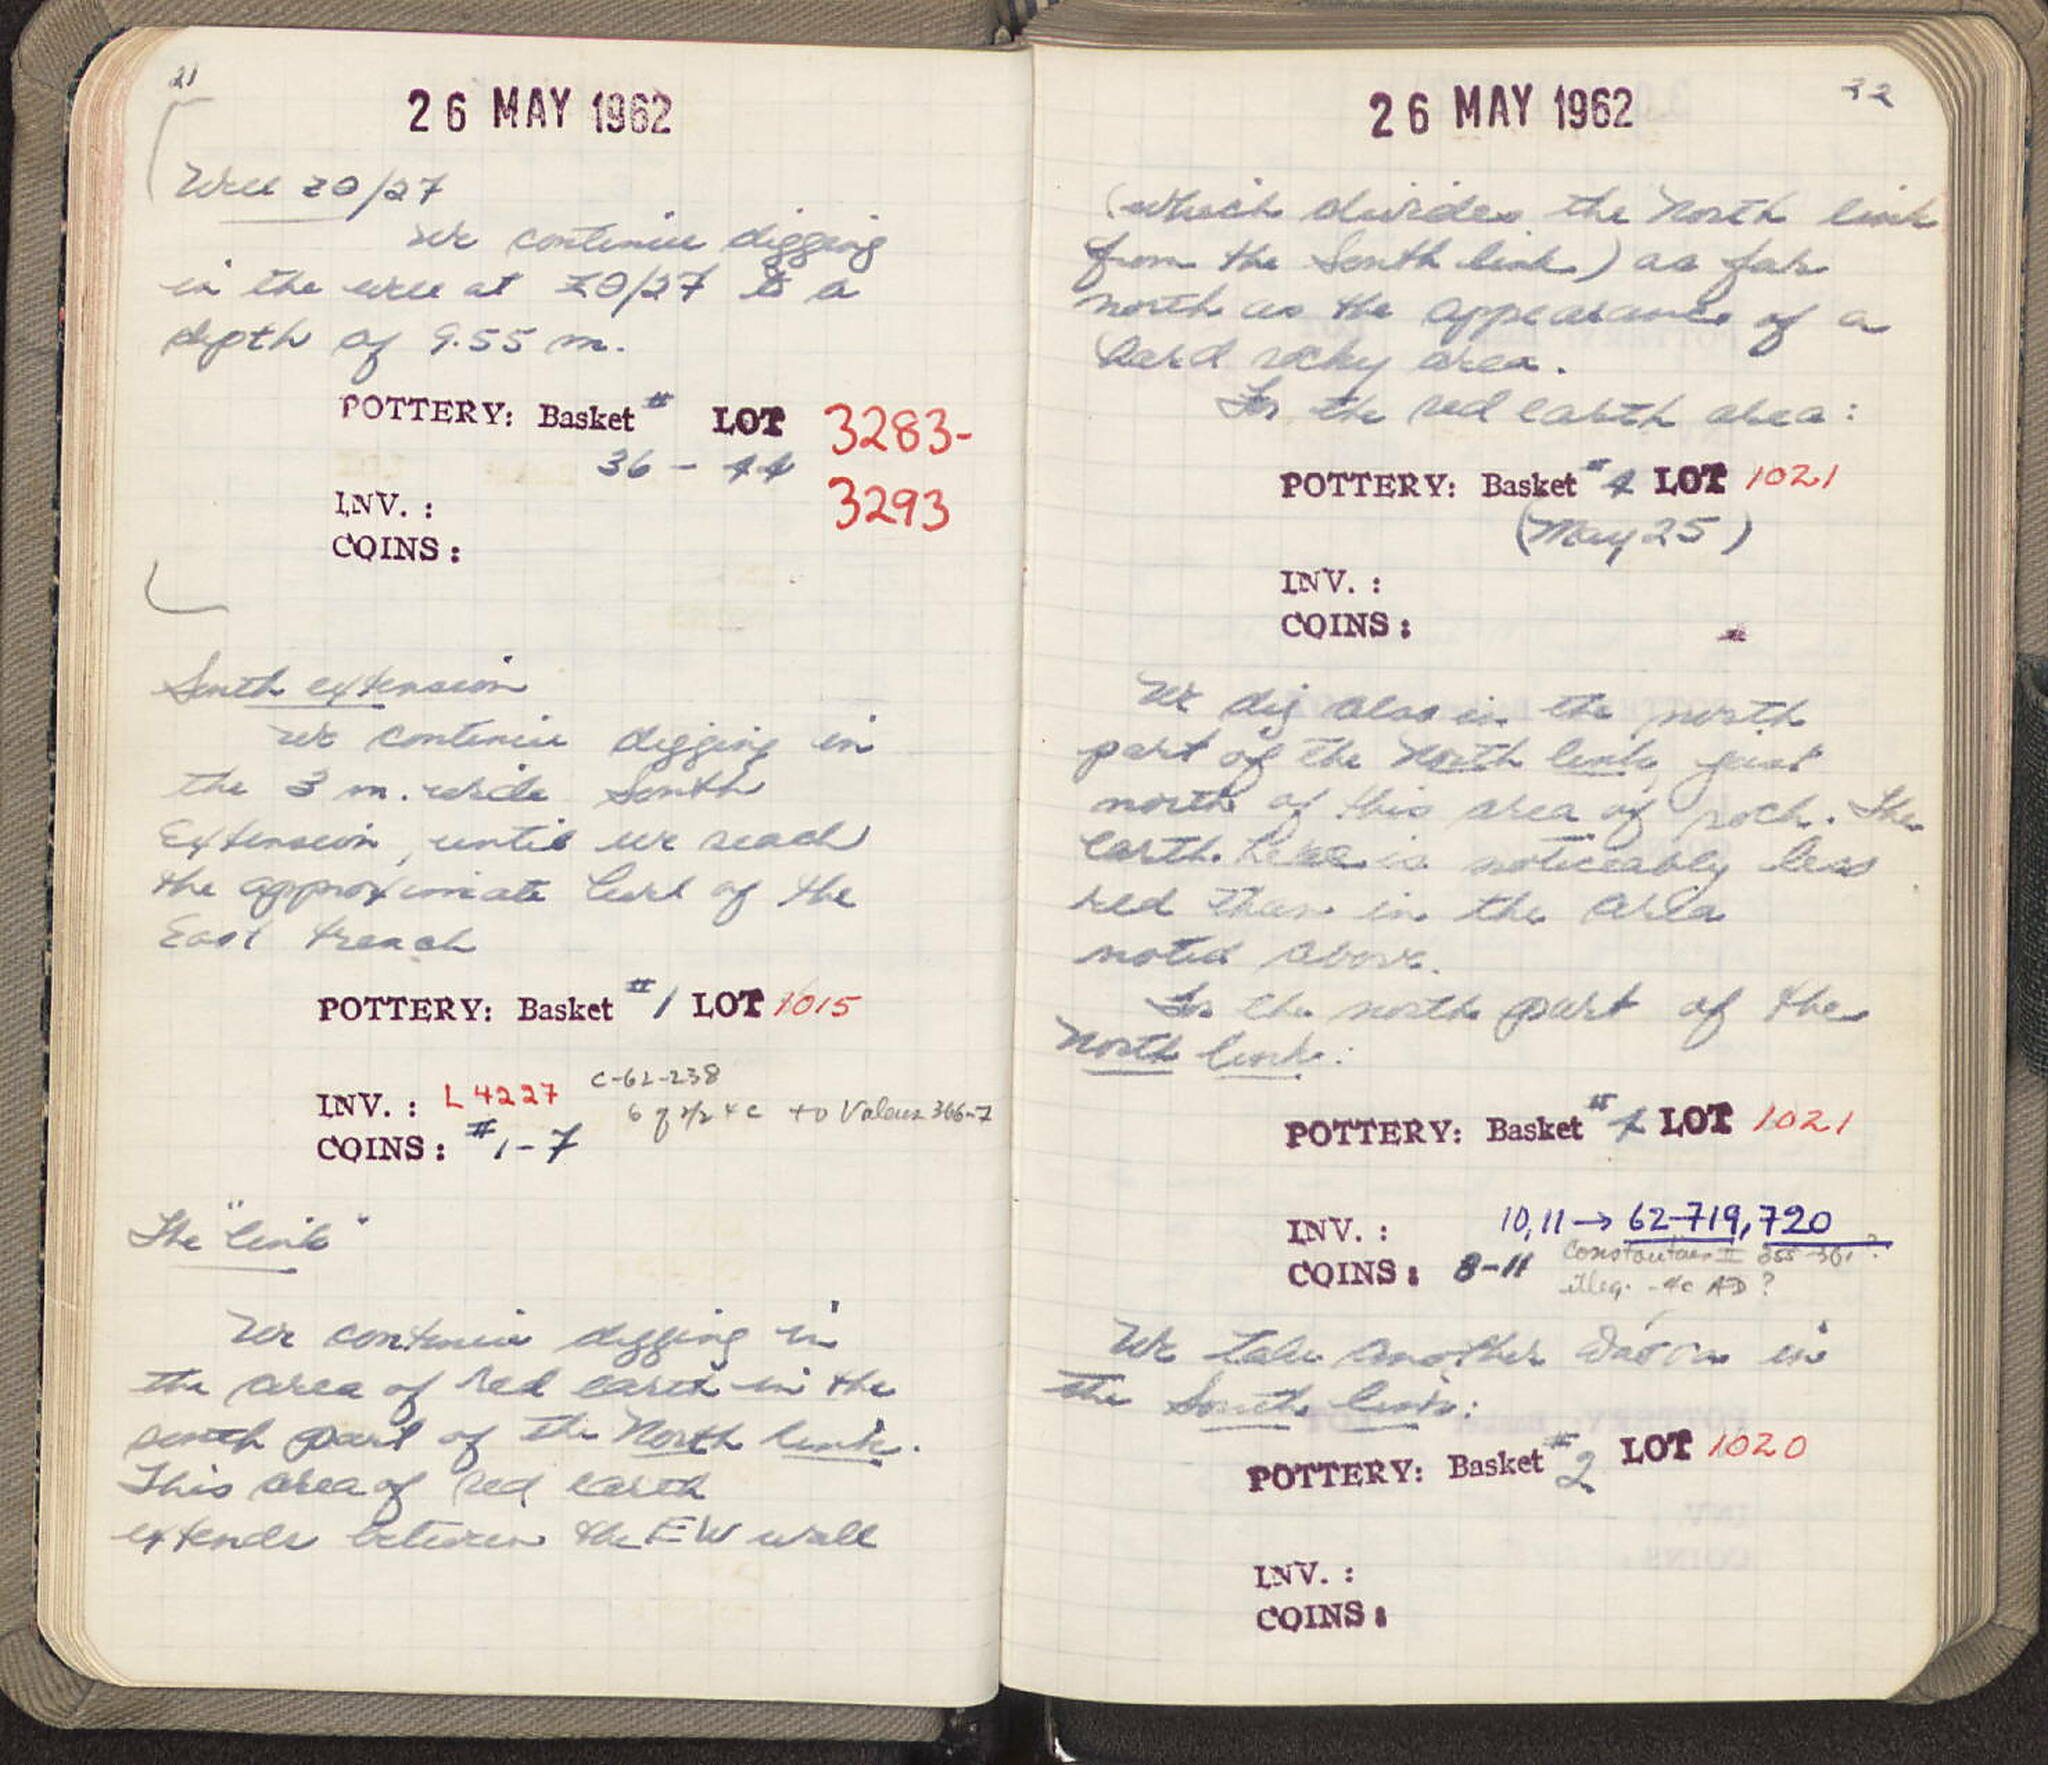 21
26 MAY 1962
Well Z0/27
We continue digging
in the well at Z0/27 to a
depth of 9.55 m.
POTTERY: Basket # LOT 3283-
36 - 44
3293
INV. :
COINS :
South extension
We continue digging in
the 3 m. wide South
Extension, until we reach
the approximate level of the
East trench
POTTERY: Basket #1 LOT 1015
C-62-238
INV. : L 4227
6 of 1/2 4c to Valens 366-7
COINS : #1-7
The "link"
We continue digging in
the area of red earth in the
south part of the North link.
This area of red earth
extends between the EW wall
22
26 MAY 1962
(which divides the North link
from the South link) as far
north as the appearance of a
hard rocky area.
In the red earth area:
POTTERY: Basket #4 LOT 1021
(May 25)
INV. :
COINS :
We dig also in the north
part of the North link, just
north of this area of rock. The
earth here is noticeably less
red than in the area
noted above.
In the north part of the
North link:
POTTERY: Basket #4 LOT 1021
INV. : 10, 11 → 62-719, 720
Constantius II 355-361?
COINS : 8-11
illeg. - 4c AD?
We take another in
the South link:
POTTERY: Basket #2 LOT 1020
INV. :
COINS :